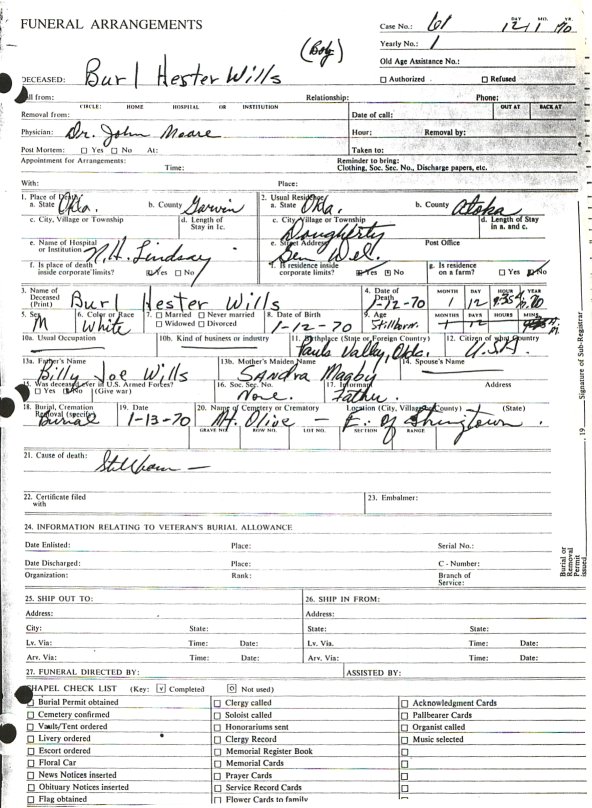 FUNERAL ARRANGEMENTS
Case No.: 61 DAY MO. YR. 12 1 70
(Boy) Yearly No.: 1
Old Age Assistance No.:
DECEASED: Burl Hester Wills ☐ Authorized ☐ Refused
ll from: Relationship: Phone:
CIRCLE: HOME HOSPITAL OR INSTITUTION OUT AT BACK AT
Removal from: Date of call:
Physician: Dr. John Moore Hour: Removal by:
Post Mortem: ☐ Yes ☐ No At: Taken to:
Appointment for Arrangements: Reminder to bring:
Time: Clothing, Soc. Sec. No., Discharge papers, etc.
With: Place:
1. Place of Death 2. Usual Residence
a. State Okla. b. County Garvin a. State Okla. b. County Atoka
c. City, Village or Township d. Length of Stay in 1c. c. City, Village or Township Dougherty d. Length of Stay in a. and c.
e. Name of Hospital or Institution N.H. Lindsay e. Street Address Gen Del. Post Office
f. Is place of death inside corporate limits? ☑ Yes ☐ No f. Is residence inside corporate limits? ☑ Yes ☐ No g. Is residence on a farm? ☐ Yes ☑ No
3. Name of Deceased (Print) Burl Hester Wills 4. Date of Death 1-12-70 MONTH DAY HOUR YEAR 1 12 9:35 A.M. 70
5. Sex M 6. Color or Race White 7. ☐ Married ☐ Never married ☐ Widowed ☐ Divorced 8. Date of Birth 1-12-70 9. Age Stillborn. MONTHS DAYS HOURS MINS. 1 12
10a. Usual Occupation 10b. Kind of business or industry 11. Birthplace (State or Foreign Country) Pauls Valley, Okla. 12. Citizen of what Country U.S.A.
13a. Father's Name Billy Joe Wills 13b. Mother's Maiden Name SANDRA Magby 14. Spouse's Name
15. Was deceased ever in U.S. Armed Forces? ☐ Yes ☐ No (Give war) 16. Soc. Sec. No. None. 17. Informant Father. Address
18. Burial, Cremation Removal (specify) Burial 19. Date 1-13-70 20. Name of Cemetery or Crematory Mt. Olive — Location (City, Village, County) (State) E. of
GRAVE NO. ROW NO. LOT NO. SECTION RANGE
21. Cause of death: Stillborn —
22. Certificate filed with 23. Embalmer:
24. INFORMATION RELATING TO VETERAN'S BURIAL ALLOWANCE
Date Enlisted: Place: Serial No.:
Date Discharged: Place: C - Number:
Organization: Rank: Branch of Service:
25. SHIP OUT TO: 26. SHIP IN FROM:
Address: Address:
City: State: State: State:
Lv. Via: Time: Date: Lv. Via. Time: Date:
Arv. Via: Time: Date: Arv. Via: Time: Date:
27. FUNERAL DIRECTED BY: ASSISTED BY:
HAPEL CHECK LIST (Key: ☑ Completed ☐ Not used)
☐ Burial Permit obtained ☐ Clergy called ☐ Acknowledgment Cards
☐ Cemetery confirmed ☐ Soloist called ☐ Pallbearer Cards
☐ Vault/Tent ordered ☐ Honorariums sent ☐ Organist called
☐ Livery ordered ☐ Clergy Record ☐ Music selected
☐ Escort ordered ☐ Memorial Register Book ☐
☐ Floral Car ☐ Memorial Cards ☐
☐ News Notices inserted ☐ Prayer Cards ☐
☐ Obituary Notices inserted ☐ Service Record Cards ☐
☐ Flag obtained ☐ Flower Cards to family
Burial or Removal Permit issued 19 Signature of Sub-Registrar